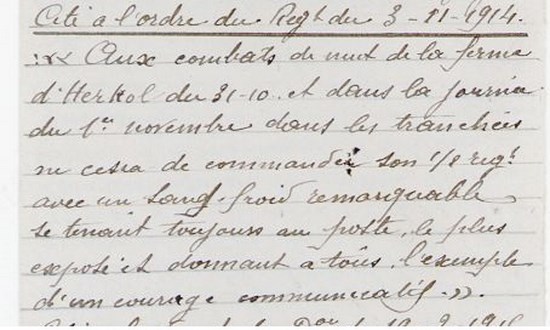 Cité à l'ordre du Regt du 3-11-1914.
« Aux combats de nuit de la ferme
d'Herkol du 31-10. et dans la journée
du 1er novembre dans les tranchées
ne cessa de commander son 1/2 regt
avec un sang-froid remarquable
se tenant toujours au poste, le plus
exposé et donnant à tous, l'exemple
d'un courage communicatif. »